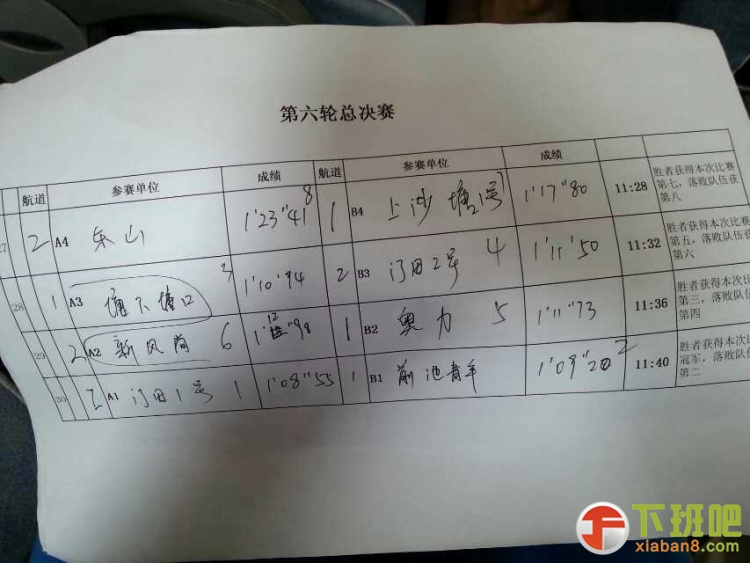 第六轮总决赛
航道 参赛单位 成绩 航道 参赛单位 成绩
27 2 A4 乐山 1'23"41 8 1 B4 上沙塘1号 1'17"80 11:28 胜者获得本次比赛
第七,落败队伍获
第八
28 1 A3 塘下塘口 3 1'10'94 2 B3 门田2号 4 1'11'50 11:32 胜者获得本次比赛
第五,落败队伍获
第六
29 2 A2 新风尚 6 1'12"99 1 B2 奥力 5 1'11"73 11:36 胜者获得本次比
第三,落败队伍
第四
30 2 A1 门田1号 1 1'08"55 1 B1 前池青年 1'09"20 2 11:40 胜者获得本次
冠军,落败队
第二
下班吧
xiaban8.com